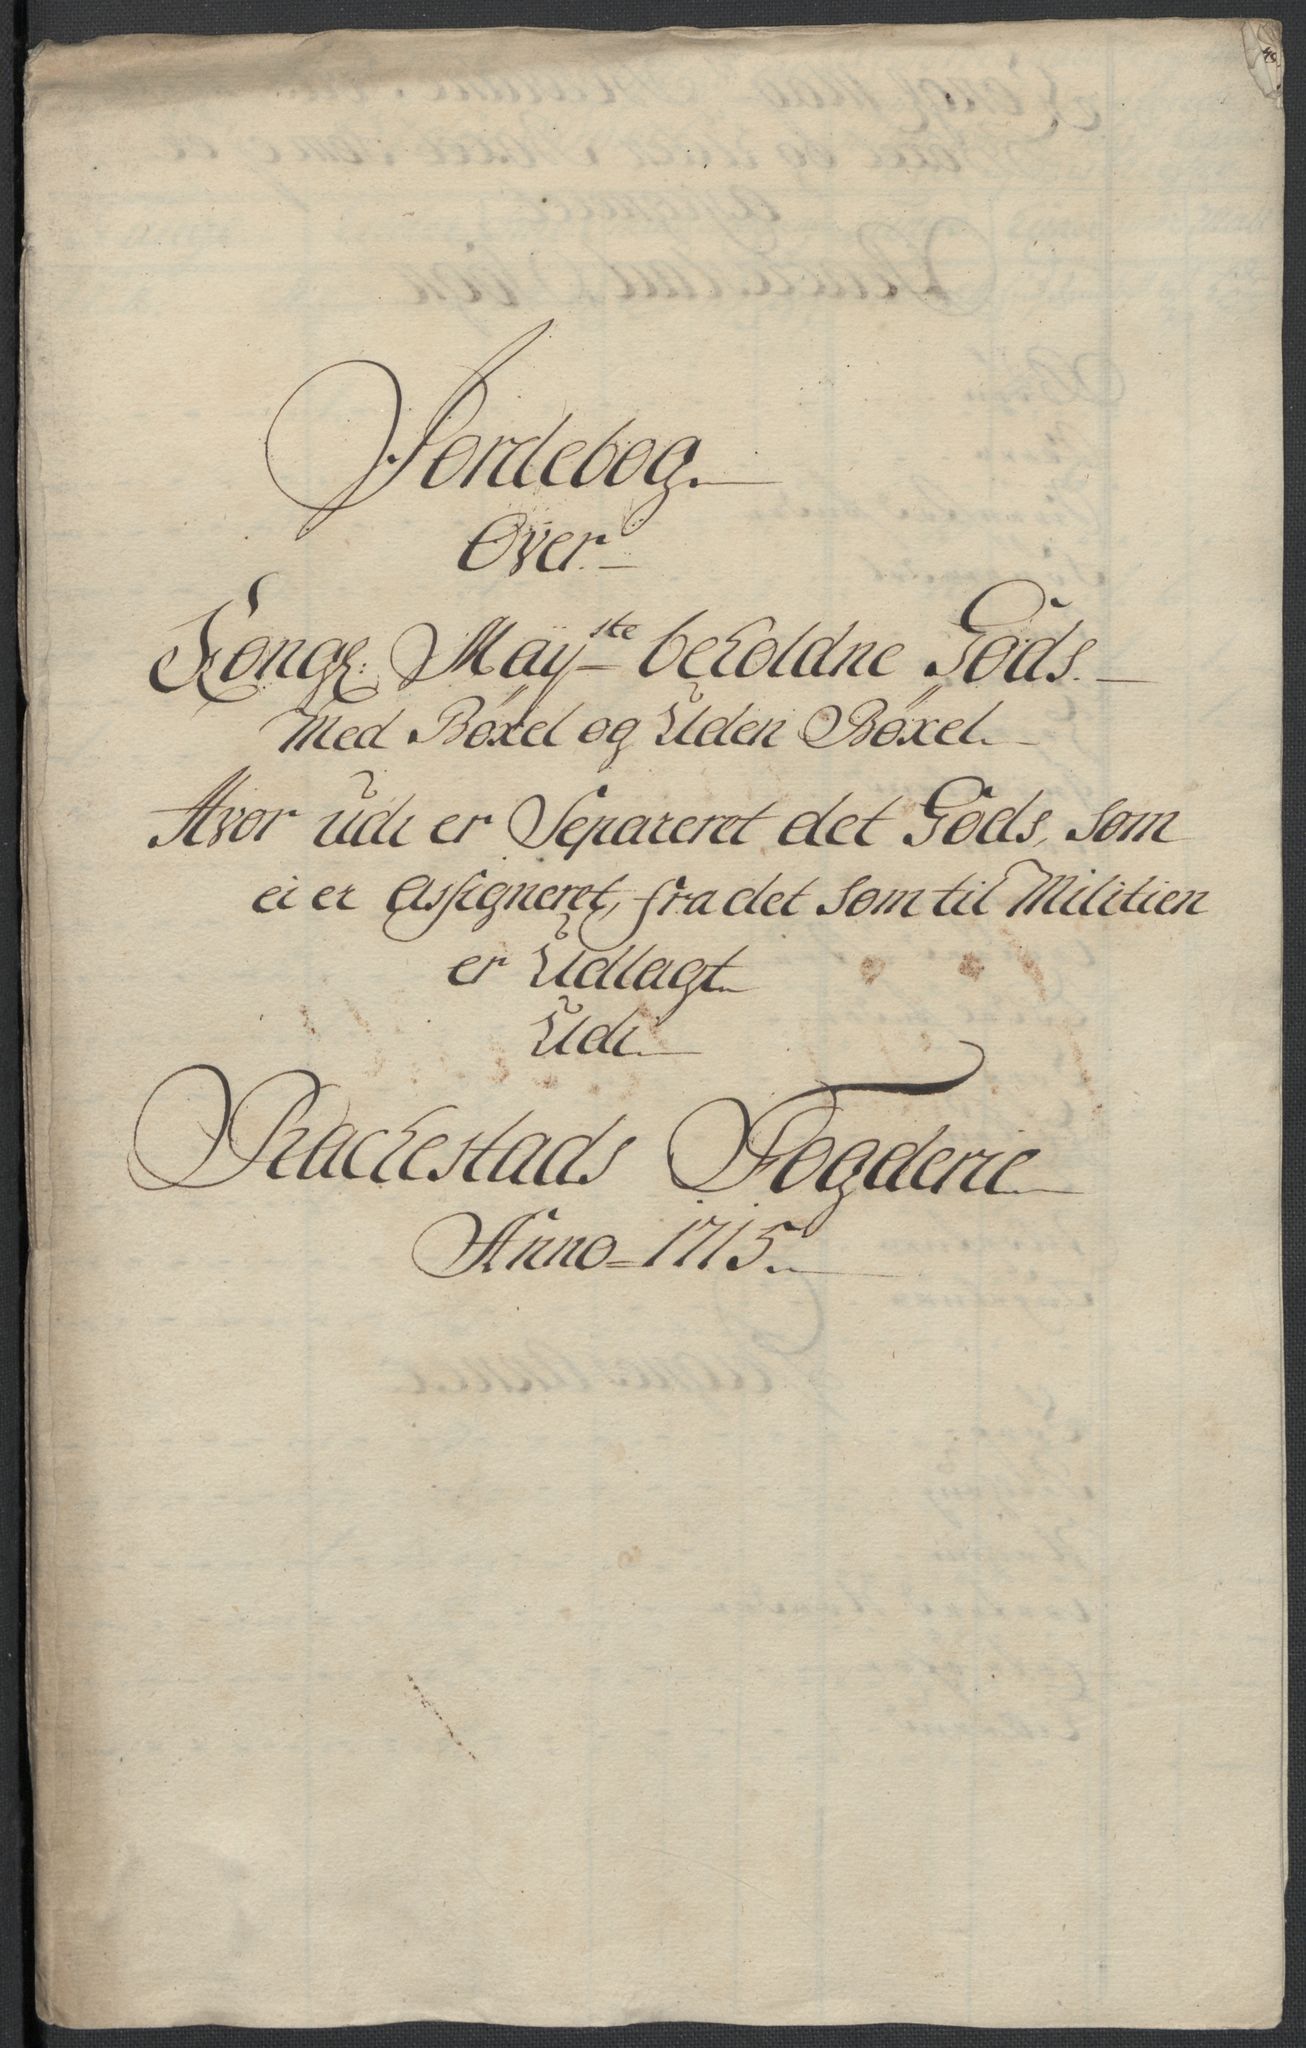 Jordebog
Over
Kongl: Maÿste beholdne Gods
Med Böxel og Uden Böxel
Hvor udi er Separeret det Gods, som
ei er Assigneret, fra det som til Militien
er Udlagt
Udi
Rackestads Fogderie
Anno 1715